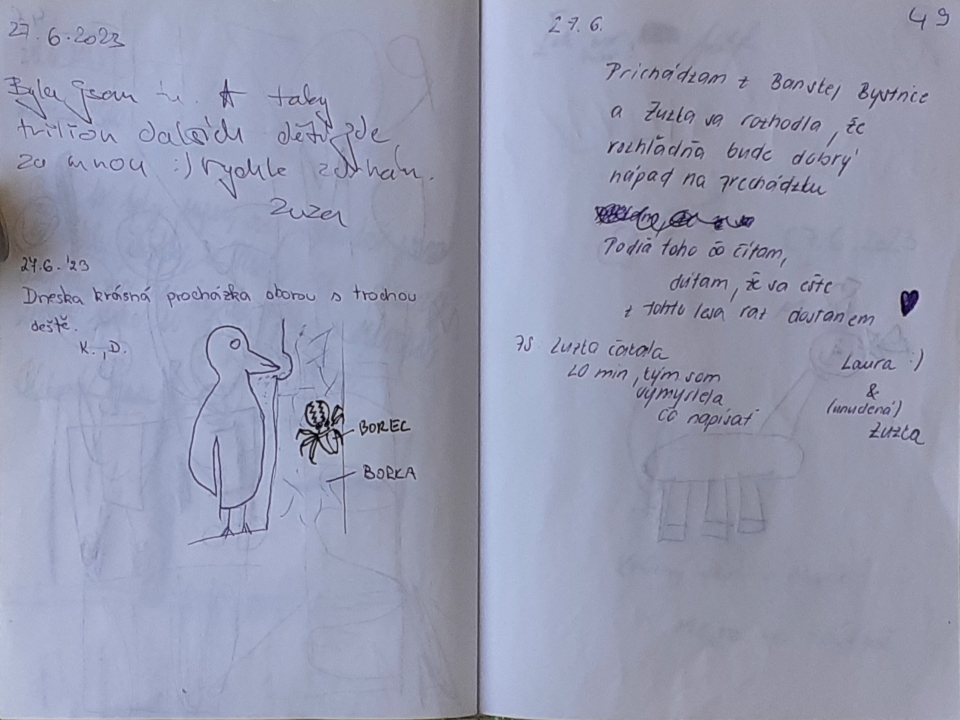 27.6.2023
Byla jsem tu. A taky
trilion dalších dětí jde
za mnou :) rychle zdrhám.
Zuza
27.6.'23
Dneska krásná procházka oborou s trochou
deště.
K., D.
BOREC
BORKA
27.6.
49
Prichádzam z Banskej Bystrice
a Zuzka sa rozhodla, že
rozhľadňa bude dobrý
nápad na prechádzku
Podľa toho čo čítam,
dúfam, že sa ešte
z tohto lesa raz dostanem
Laura :)
&
(unudená)
Zuzka
Zuzka čakala
20 min, kým som
vymyslela
čo napísať